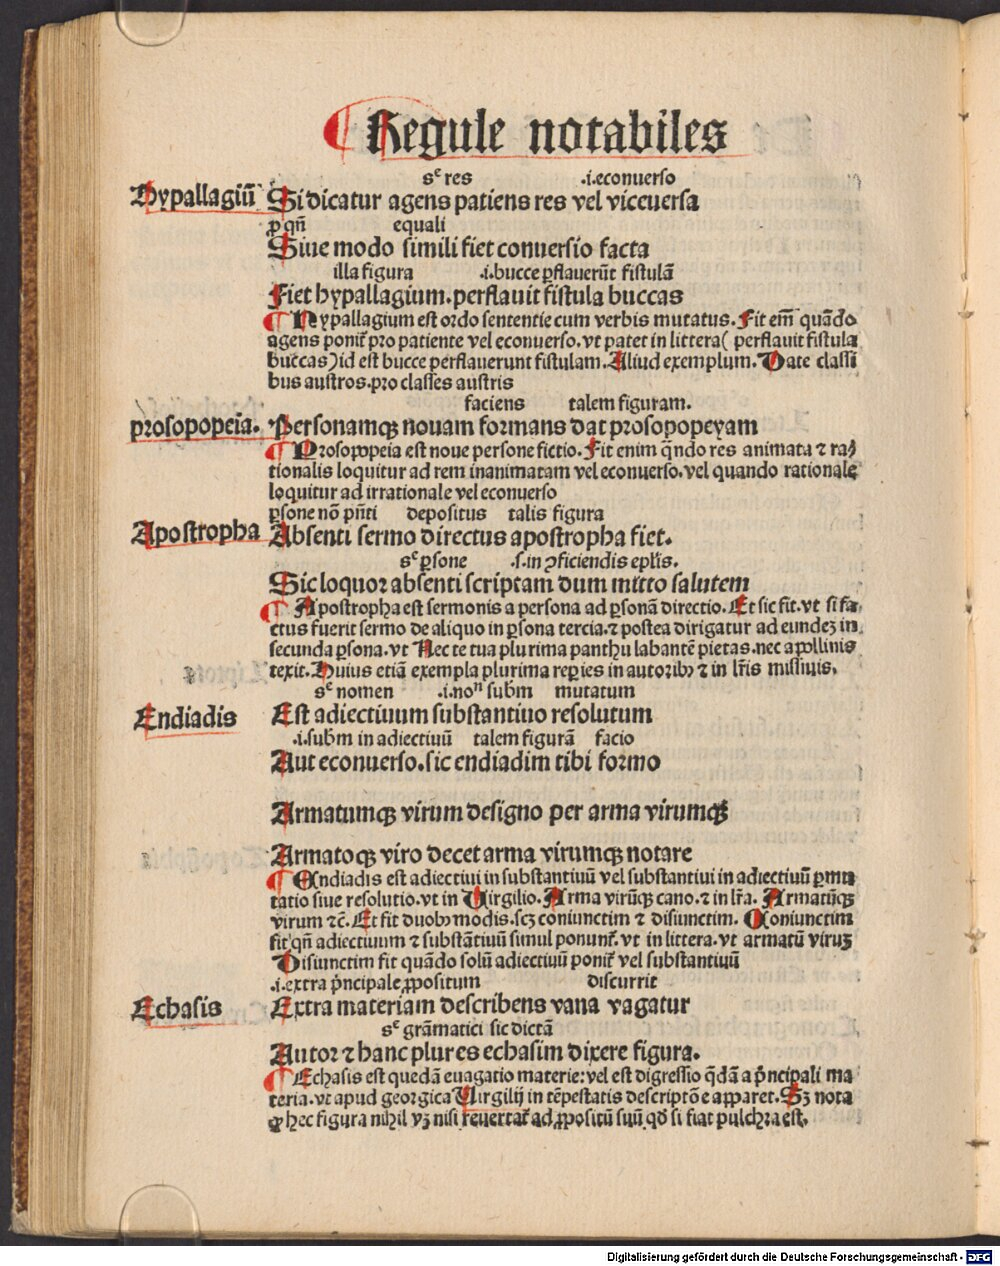 Regule notabiles
sᶜ res .i.econuerso
Hypallagiũ Si dicatur agens patiens res vel viceuersa
ꝓ qñ equali
Siue modo simili fiet conuersio facta
illa figura .i.bucce ꝑflauerũt fistulã
Fiet hypallagium.perflauit fistula buccas
¶ Hypallagium est ordo sententie cum verbis mutatus.Fit em̃ quãdo
agens ponit̃ pro patiente vel econuerso.vt patet in littera( perflauit fistula
buccas)id est bucce perflauerunt fistulam.Aliud exemplum.Date classi
bus austros.pro classes austris
faciens talem figuram.
prosopopeia. Personamqꝫ nouam formans dat prosopopeyam
¶ Prosopopeia est noue persone fictio.Fit enim q̃ndo res animata ⁊ ra
tionalis loquitur ad rem inanimatam vel econuerso.vel quando rationale
loquitur ad irrationale vel econuerso
ꝑsone nõ pñti depositus talis figura
Apostropha Absenti sermo directus apostropha fiet.
sᶜ ꝑsone .s.in ꝯficiendis epl̃is.
Sic loquor absenti scriptam dum mitto salutem
¶ Apostropha est sermonis a persona ad ꝑsonã directio.Et sic fit.vt si fa
ctus fuerit sermo de aliquo in ꝑsona tercia.⁊ postea dirigatur ad eundeꝫ in
secunda ꝑsona.vt Nec te tua plurima panthu labantẽ pietas.nec apollinis
texit.Huius etiã exempla plurima reꝑies in autoribꝫ ⁊ in lr̃is missiuis.
sᶜ nomen .i.noⁿ subm̃ mutatum
Endiadis Est adiectiuum substantiuo resolutum
.i.subm̃ in adiectiuũ talem figurã facio
Aut econuerso.sic endiadim tibi formo
Armatumqꝫ virum designo per arma virumqꝫ
Armatoqꝫ viro decet arma virumqꝫ notare
¶ Endiadis est adiectiui in substantiuũ vel substantiui in adiectiuũ ꝑmu
tatio siue resolutio.vt in Virgilio.Arma virũqꝫ cano.⁊ in lr̃a.Armatũqꝫ
virum ⁊c̃.Et fit duobꝫ modis.scꝫ coniunctim ⁊ disiunctim. Coniunctim
fit qñ adiectiuum ⁊ substãtiuũ simul ponunt̃.vt in littera.vt armatũ viruꝫ
Disiunctim fit quãdo solũ adiectiuũ ponit̃ vel substantiuũ
.i.extra p̃ncipale ꝓpositum discurrit
Echasis Extra materiam describens vana vagatur
sᶜ grãmatici sic dictã
Autor ⁊ hanc plures echasim dixere figura.
¶ Echasis est quedã euagatio materie:vel est digressio q̃dã a p̃ncipali ma
teria.vt apud georgica Virgilij in tẽpestatis descriptõe apparet.Sꝫ nota
ꝙ hec figura nihil vꝫ nisi reuertat̃ ad ꝓpositũ suũ qđ si fiat pulchra est.
Digitalisierung gefördert durch die Deutsche Forschungsgemeinschaft - DFG